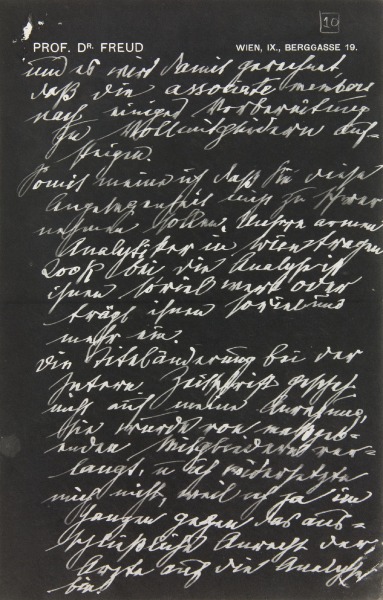 10
PROF. DR. FREUD WIEN, IX., BERGGASSE 19.
und es wird damit gerechnet,
daß die associate members
nach einiger Vorbereitung
zu Vollmitgliedern auf-
steigen.
Somit meine ich daß Sie diese
Angelegenheit nicht zu schwer
nehmen sollen. Unsre armen
Analytiker in Wien tragen
200 K bei, die Analyse ist
ihnen soviel wert oder
trägt ihnen soviel und
mehr ein.
Die Titeländerung bei der
Intern. Zeitschrift geschah
nicht auf meine Anregung,
sie wurde von maßgeb-
enden Mitgliedern ver-
langt, u ich widersetzte
mich nicht, weil ich ja im
Ganzen gegen das aus-
schließliche Anrecht der
Ärzte auf die Analyse
bin.